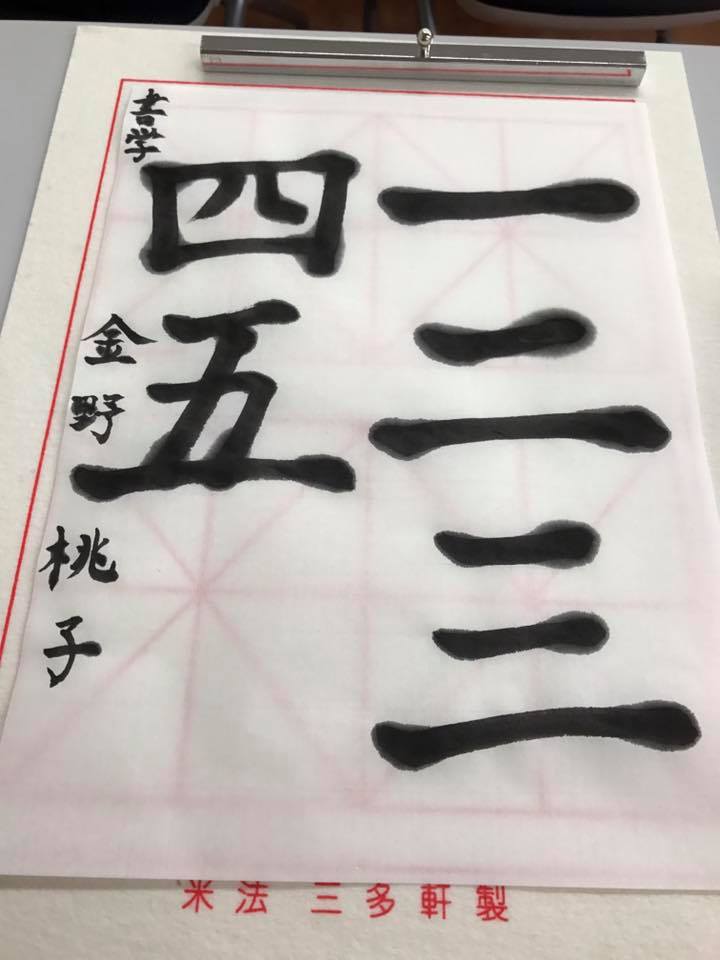 一二三
四五
書学
金野桃子
米法 三多軒製